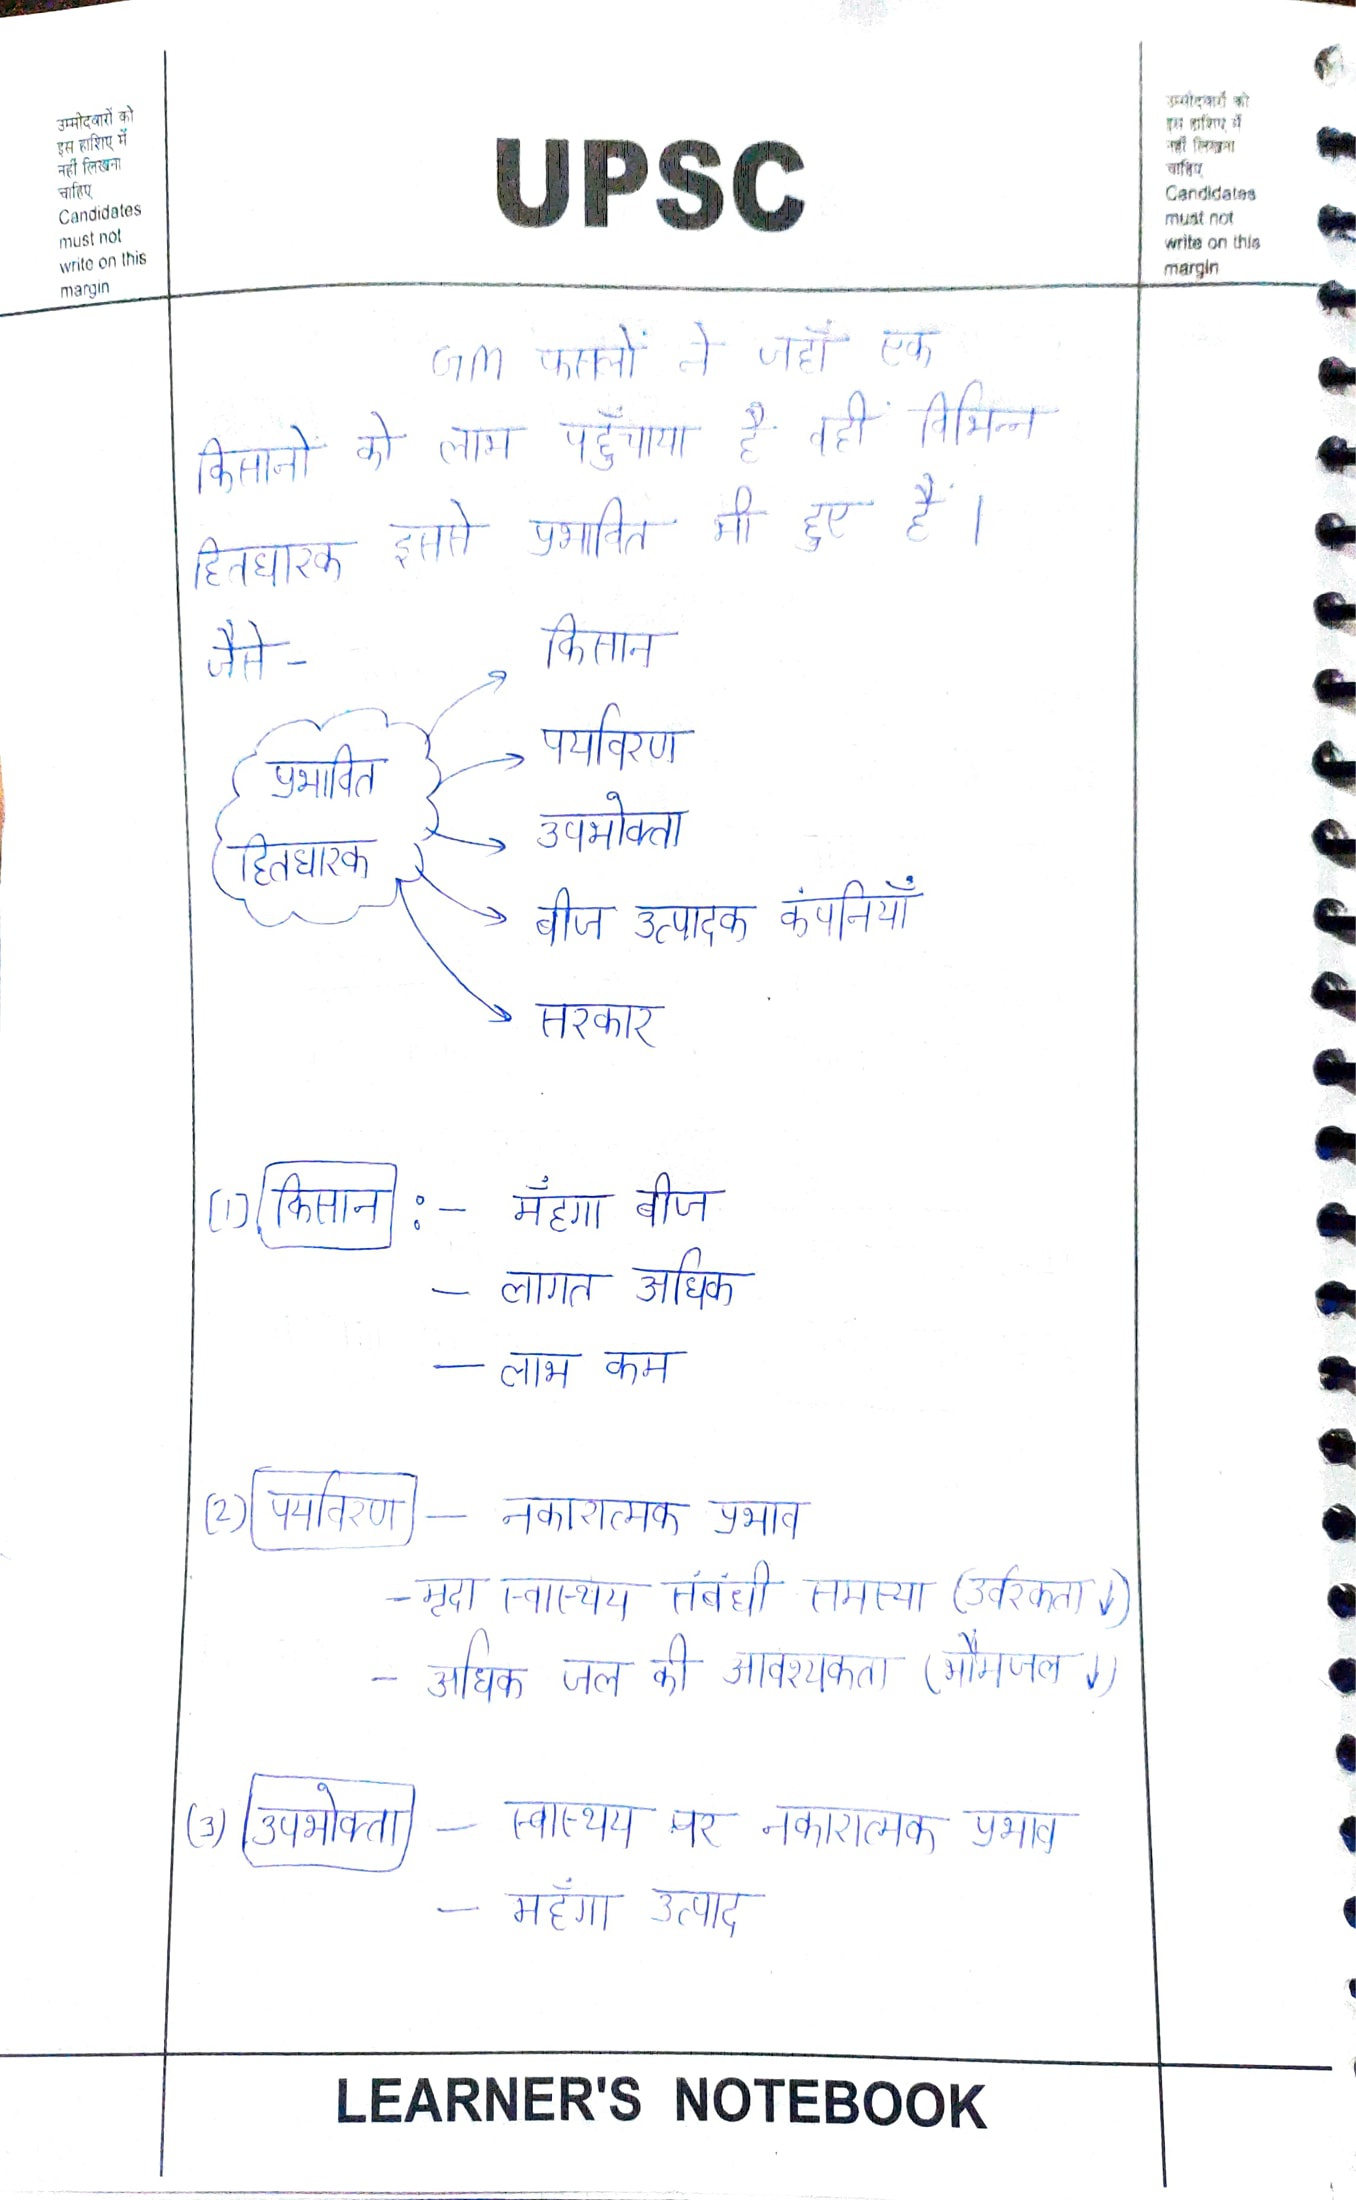 उम्मीदवारों को
इस हाशिए में
नहीं लिखना
चाहिए
Candidates
must not
write on this
margin
UPSC
उम्मीदवारों को
इस हाशिए में
नहीं लिखना
चाहिए
Candidates
must not
write on this
margin
GM फसलों ने जहाँ एक
किसानों को लाभ पहुँचाया है वहीं विभिन्न
हितधारक इससे प्रभावित भी हुए हैं।
जैसे -
प्रभावित
हितधारक
किसान
पर्यावरण
उपभोक्ता
बीज उत्पादक कंपनियाँ
सरकार
(1) किसान :- मँहगा बीज
- लागत अधिक
- लाभ कम
(2) पर्यावरण - नकारात्मक प्रभाव
- मृदा स्वास्थय संबंधी समस्या (उर्वरकता ↓)
- अधिक जल की आवश्यकता (भौमजल ↓)
(3) उपभोक्ता - स्वास्थय पर नकारात्मक प्रभाव
- महँगा उत्पाद
LEARNER'S NOTEBOOK